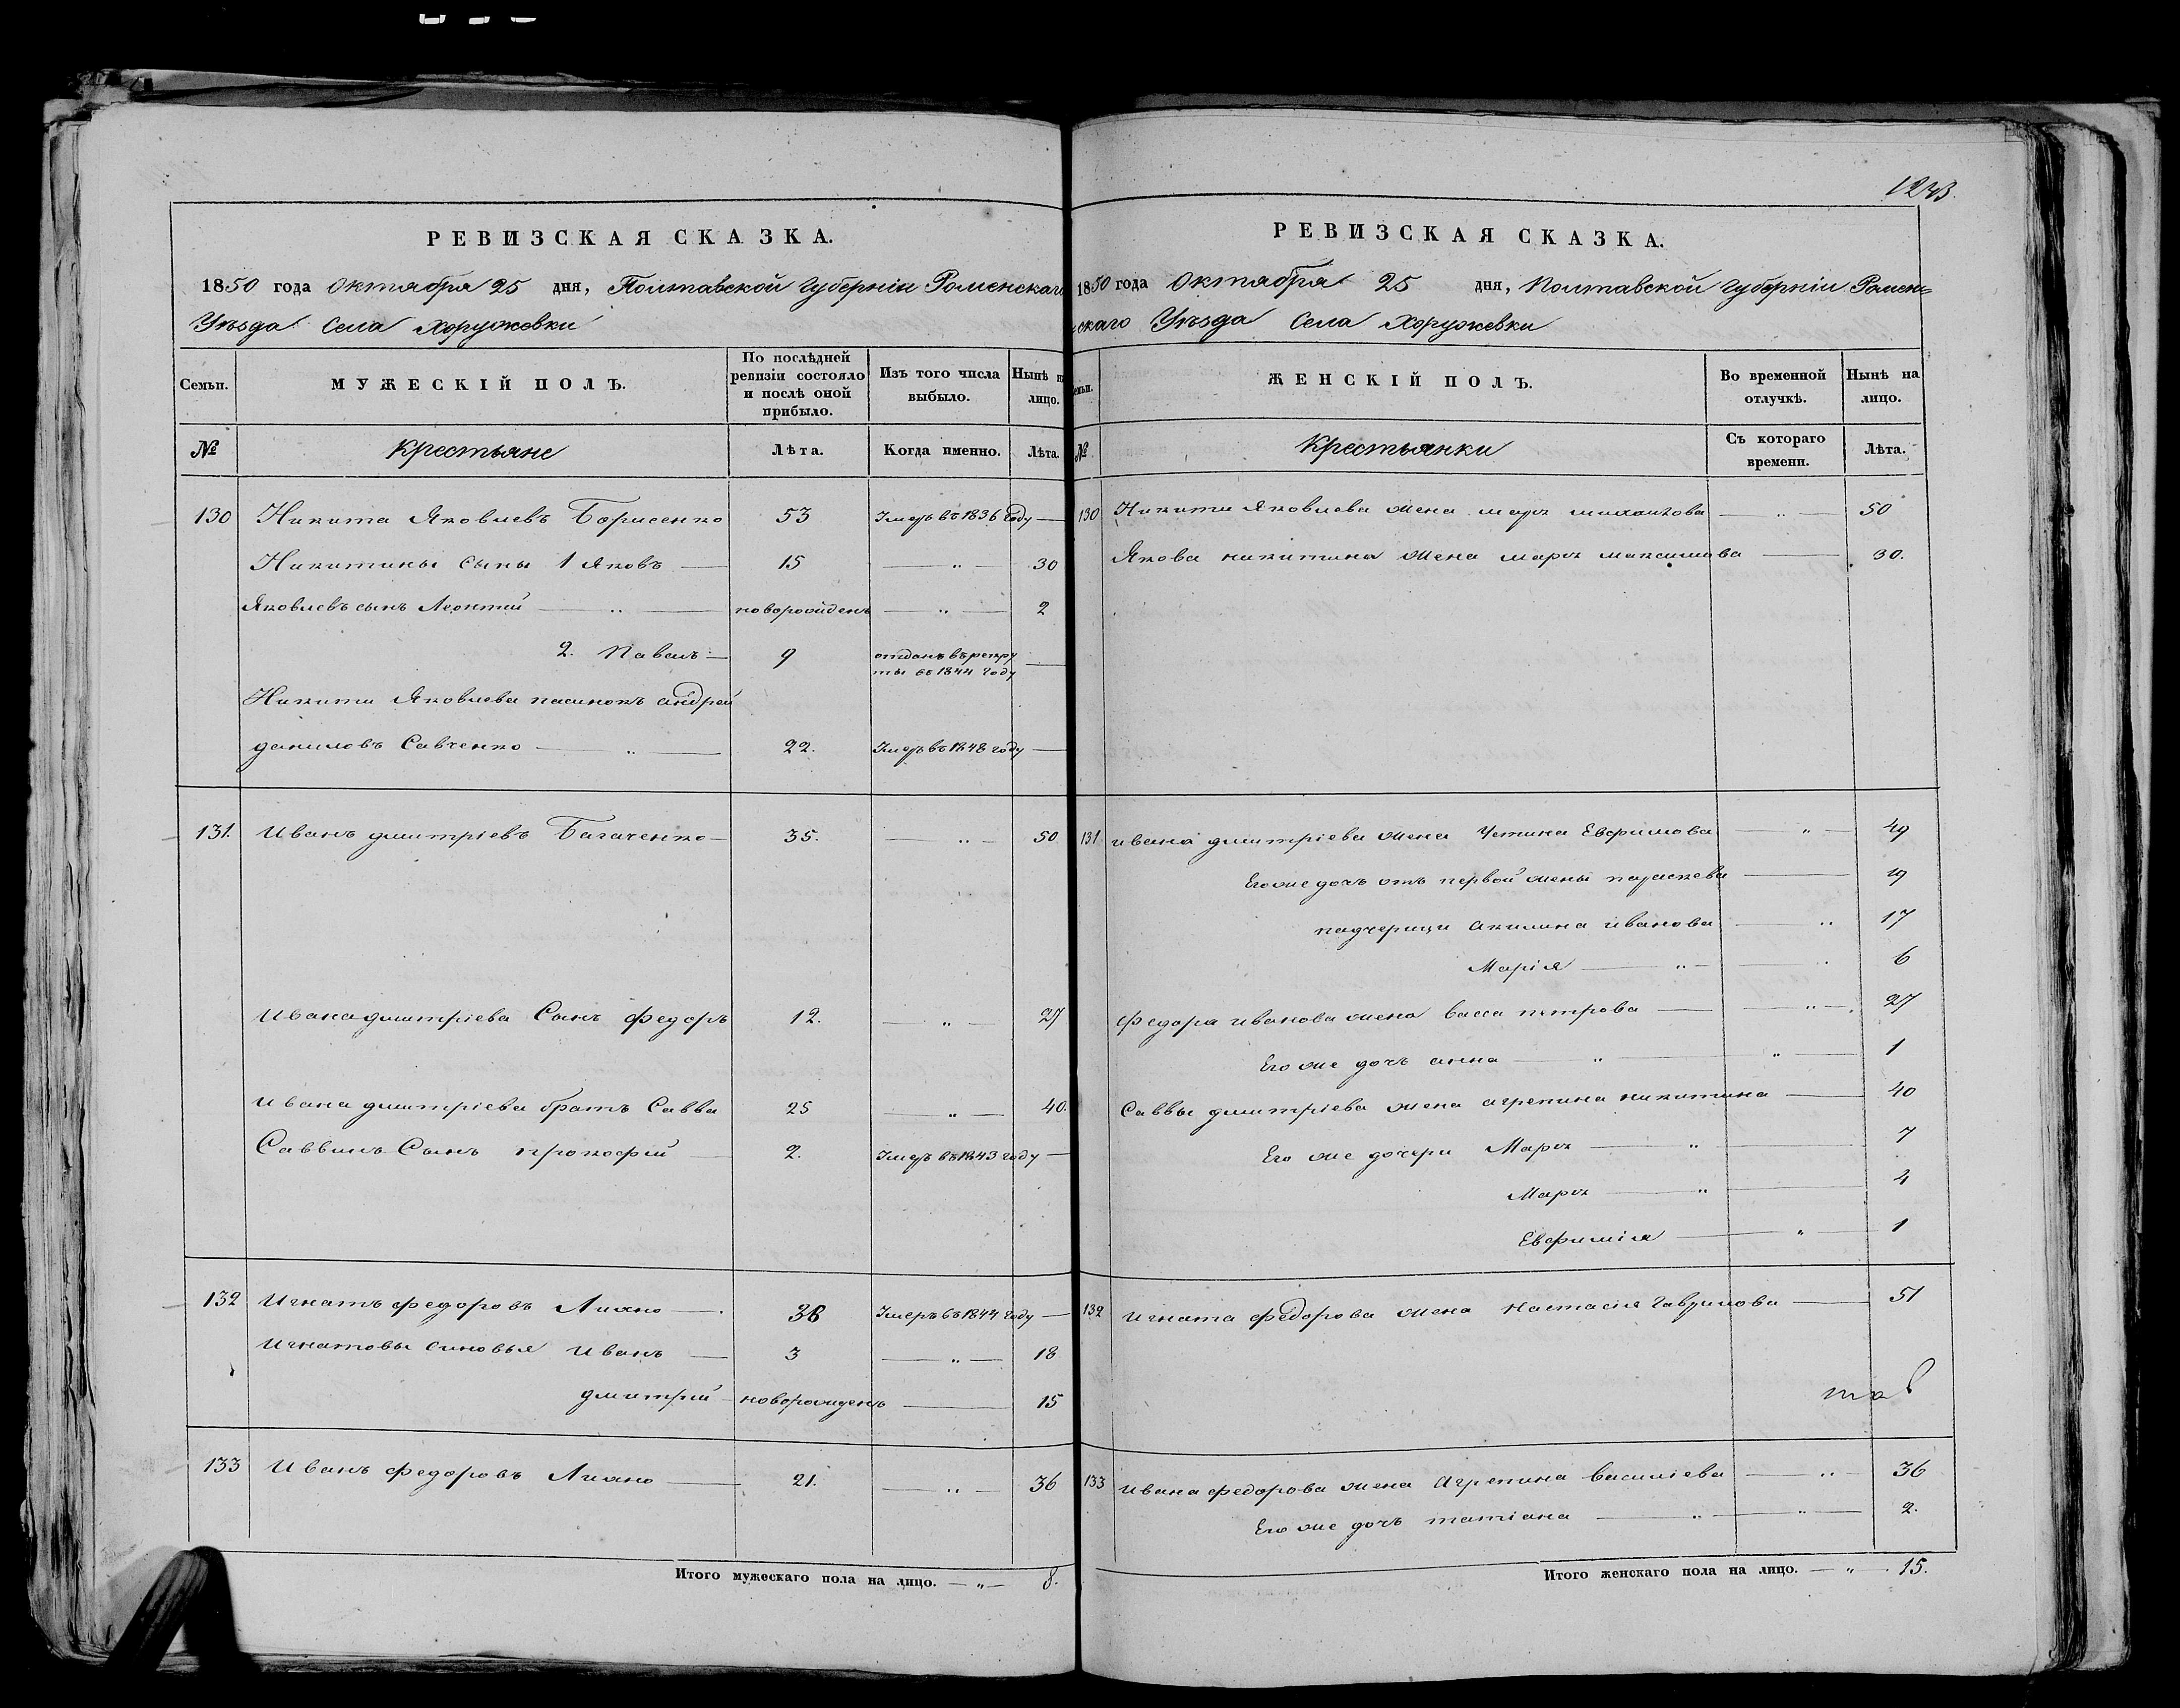 РЕВИЗСКАЯ СКАЗКА.
1850 года Октября 25 дня, Полтавской Губерніи Роменскаго
Уѣзда Села Хоружевки
Семьи. МУЖЕСКІЙ ПОЛЪ. По послѣдней ревизіи состояло и послѣ оной прибыло. Изъ того числа выбыло. Нынѣ на лицо.
№ Крестьяне Лѣта. Когда именно. Лѣта.
130 Никита Яковлевъ Борисенко 53 Умеръ въ 1836 году —
Никитины сыны 1 Яковъ — 15 — „ — 30
Яковлевъ сынъ Леонтій — „ — новорожденъ — „ — 2
2. Павелъ — 9 отданъ въ рекру
ты въ 1844 году —
Никиты Яковлева пасинокъ андрей
даниловъ Савченко — „ — 22. Умеръ въ 1848 году —
131. Иванъ дмитріевъ Багаченко — 35. — „ — 50
Ивана дмитріева Сынъ федоръ 12. — „ — 27
Ивана дмитріева братъ Савва 25 — „ — 40.
Саввинъ Сынъ прокофій — 2. Умеръ въ 1843 году —
132 Игнатъ федоровъ Ляхно — 36 Умеръ въ 1844 году —
Игнатовы синовья Иванъ — 3 — „ — 18
дмитрій — новорожденъ — 15
133 Иванъ федоровъ Ляхно — 21. — „ — 36
Итого мужескаго пола на лицо. — „ — 8.
1243.
РЕВИЗСКАЯ СКАЗКА.
1850 года Октября 25 дня, Полтавской Губерніи Ромен=
скаго Уѣзда Села Хоружевки
Семьи. ЖЕНСКІЙ ПОЛЪ. Во временной отлучкѣ. Нынѣ на лицо.
№ Крестьянки Съ котораго времени. Лѣта.
130 Никиты Яковлева жена марѳа михайлова — „ — 50
Якова никитина жена марѳа максимова — 30.
131 ивана дмитріева жена Устина Евфимова — „ — 49
Его же дочь отъ первой жены параскева — 19
падчерици акилина иванова — „ 17
Марія — „ — „ 6
федора иванова жена васса петрова — „ — 27
Его же дочь анна — „ — „ — 1
Саввы дмитріева жена агрепина никитина — 40
Его же дочери Марѳа — „ — 7
Марѳа — „ — 4
Евфимія — „ — 1
132 Игната федорова жена Настасія гаврилова — 51
133 Ивана федорова жена Агрепина василіева — „ — 36
Его же дочь татіана — „ — „ — 2.
Итого женскаго пола на лицо. — „ — 15.